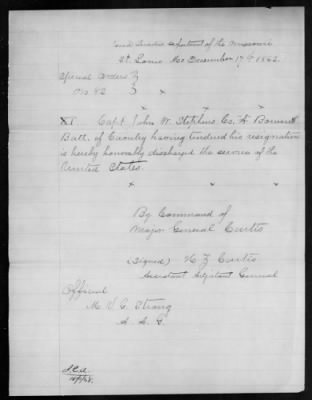 Head Quarters Department of the Missouri
St. Louis Mo December 17th 1862.
Special Orders
No 82
x x x
XI. Capt. John W. Stephens Co. "A" Bowen's
Batt. of Cavalry having tendered his resignation
is hereby honorably discharged the service of the
United States.
x x
By Command of
Major General Curtis
(Signed) H Z Curtis
Assistant Adjutant General
Official
A. A. G.